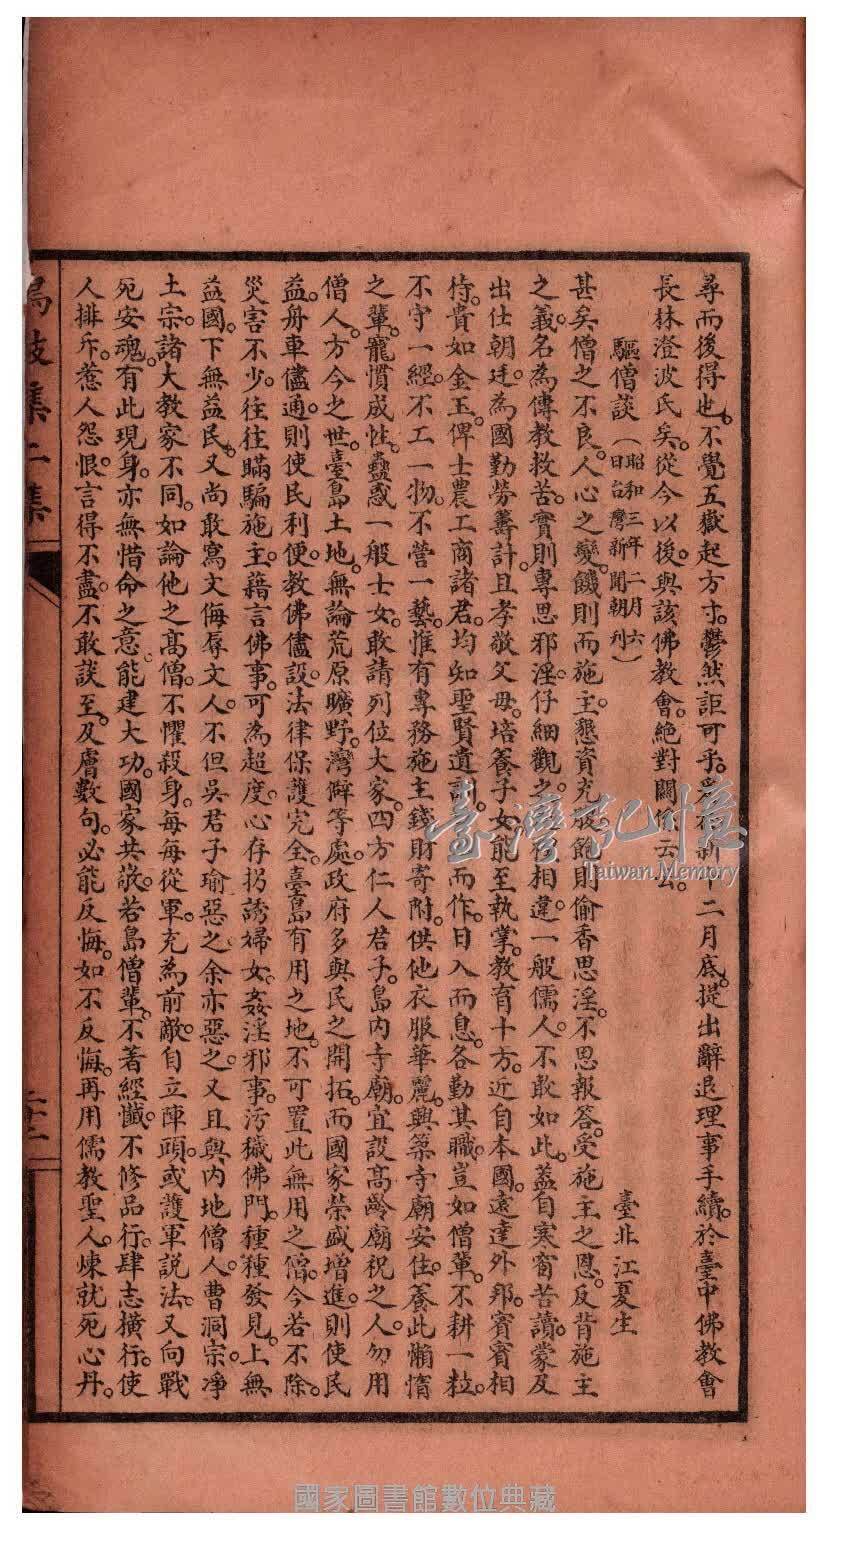 尋而後得也。不覺五嶽起方寸。鬱然詎可乎。爰在新十二月底。提出辭退理事手續。於臺中佛教會
長林澄波氏矣。從今以後。與該佛教會。絕對關係云云。
驅僧談(昭和三年二月六日台灣新聞朝刊) 臺北 江夏生
甚矣僧之不良。人心之變。饑則而施主。懇資充飯。飽則偷香思淫。不思報答。受施主之恩。反背施主
之義。名為傳教救苦。實則專思邪淫。仔細觀之。相違一般儒人。不敢如此。蓋自寒窗苦讀。蒙及
出仕朝廷。為國勤勞籌計。且孝敬父母。培養子女。能至執掌。教育十方。近自本國。遠達外邦。賓賓相
待。貴如金玉。俾士農工商諸君。均知聖賢遺訓。而作。日入而息。各勤其職。豈如僧輩。不耕一粒。
不守一經。不工一物。不營一藝。惟有專務施主錢財寄附。供他衣服華麗。興築寺廟安住。養此懶惰
之輩。寵慣成性。蠱惑一般士女。敢請列位大家。四方仁人君子。島內寺廟。宜設高齡廟祝之人。勿用
僧人。方今之世。臺島土地。無論荒原曠野。灣僻等處。政府多與民之開拓。而國家榮盛增進。則使民
益。舟車儘通。則使民利便。教佛儘設。法律保護完全。臺島有用之地。不可置此無用之僧。今若不除。
災害不少。往往瞞騙施主。藉言佛事。可為超度。心存拐誘婦女。姦淫邪事。污穢佛門。種種發見。上無
益國。下無益民。又尚敢寫文侮辱文人。不但吳君子瑜惡之。余亦惡之。又且與內地僧人。曹洞宗。凈
土宗。諸大教家不同。如論他之高僧。不懼殺身。每每從軍。充為前敵。自立陣頭。或護軍說法。又向戰
死安魂。有此現身。亦無惜命之意。能建大功。國家共敬。若島僧輩。不著經懺。不修品行。肆志橫行。使
人排斥。惹人怨恨。言得不盡。不敢談至。及膚數句。必能反悔。如不反悔。再用儒教聖人。煉就死心丹。
集二集
臺灣記憶
Taiwan Memory
國家圖書館數位典藏